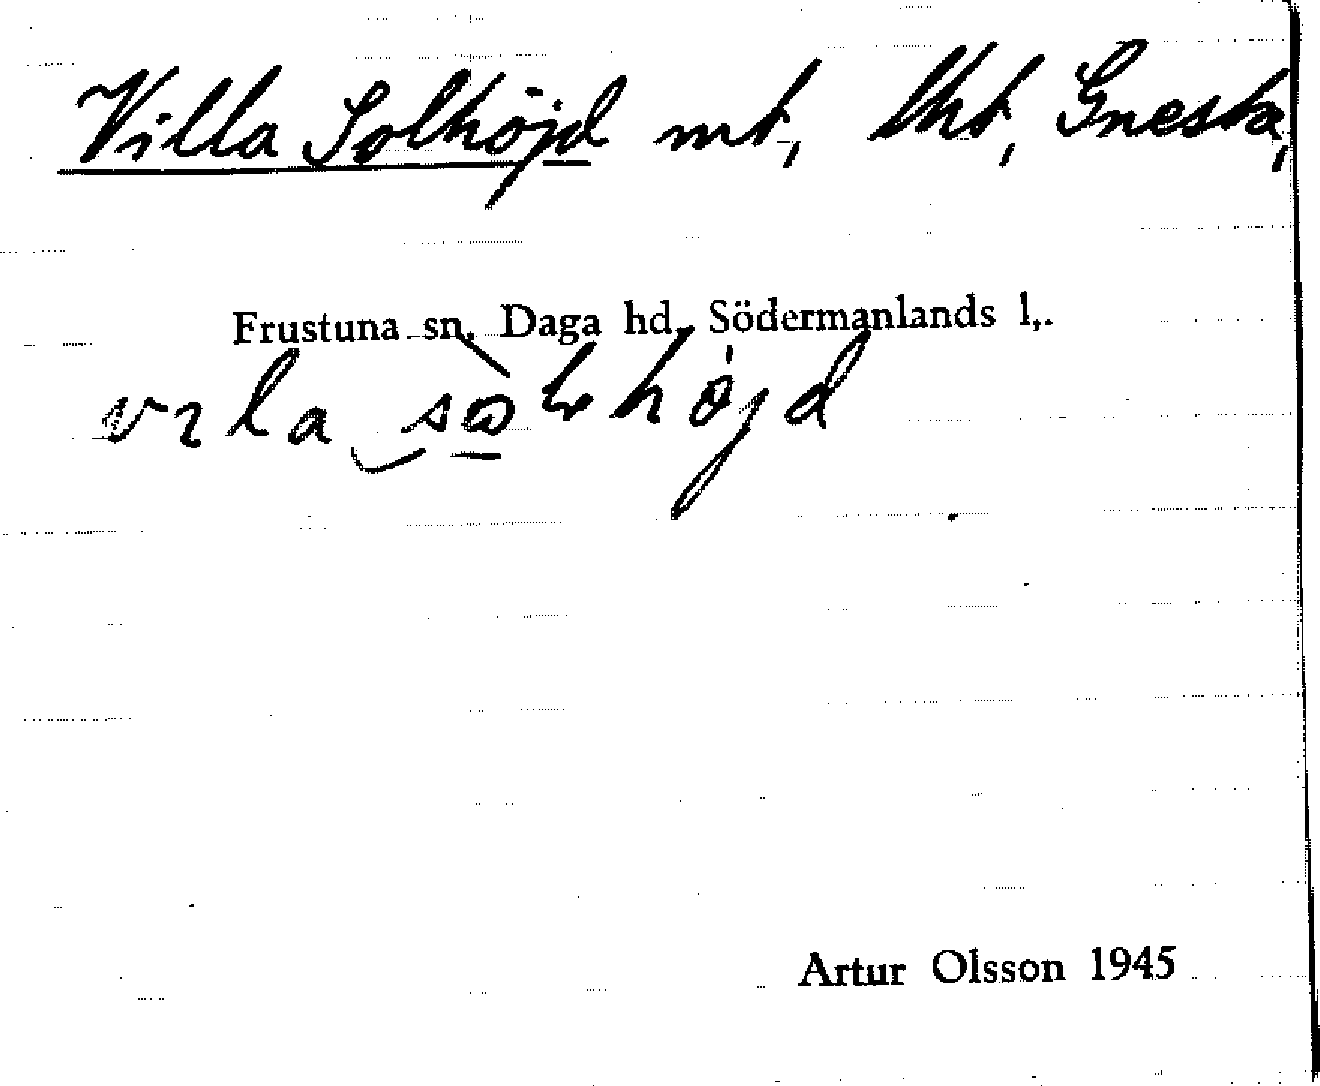 Villa Solhöjd mt, lht, Gnesta,
Frustuna sn. Daga hd. Södermanlands l,.
Artur Olsson 1945